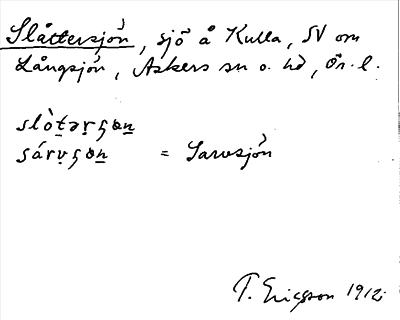 Slåttersjön, sjö å Kulla, SV om
Långsjön, Askers sn o. hd, Ör. l.
slòt̠ər̠ʂɷn̠
sárv̠ʂɷn̠ = Sarvsjön
T. Ericsson 1912.